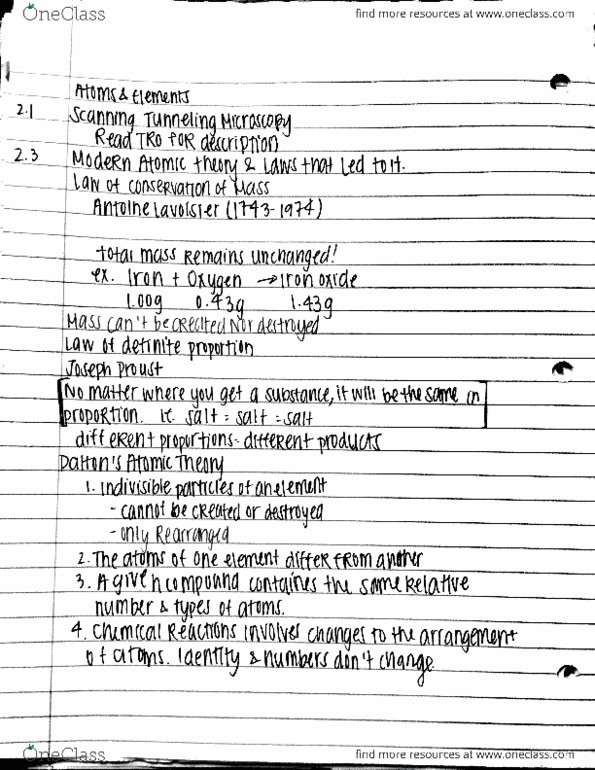 OneClass
find more resources at www.oneclass.com
Atoms & Elements
2.1 Scanning Tunneling Microscopy
Read TRO FOR description
2.3 Modern Atomic theory & Laws that led to it.
Law of conservation of Mass
Antoine Lavoisier (1743-1974)
total mass remains unchanged!
ex. Iron + Oxygen → Iron oxide
1.00g 0.43g 1.43g
Mass can't be created nor destroyed
Law of definite proportion
Joseph Proust
No matter where you get a substance, it will be the same in
proportion. ie. salt = salt = salt
different proportions - different products
Dalton's Atomic Theory
1. Indivisible particles of an element
- cannot be created or destroyed
- only Rearranged
2. The atoms of one element differ from another
3. A given compound containes the same relative
number & types of atoms.
4. Chemical Reactions involves changes to the arrangement
of atoms. Identity & numbers don't change
OneClass
find more resources at www.oneclass.com